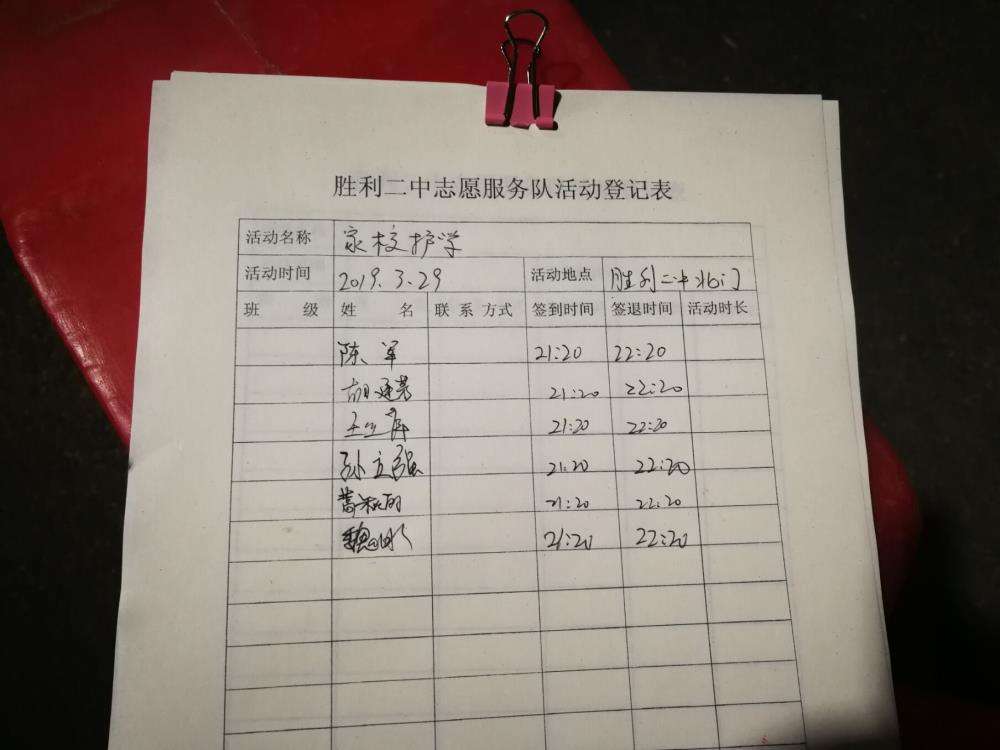 胜利二中志愿服务队活动登记表
活动名称 家校护学
活动时间 2019.3.29 活动地点 胜利二中北门
班 级 姓 名 联系方式 签到时间 签退时间 活动时长
陈军 21:20 22:20
胡建 21:20 22:20
王 21:20 22:20
孙立强 21:20 22:20
21:20 22:20
魏 21:20 22:20